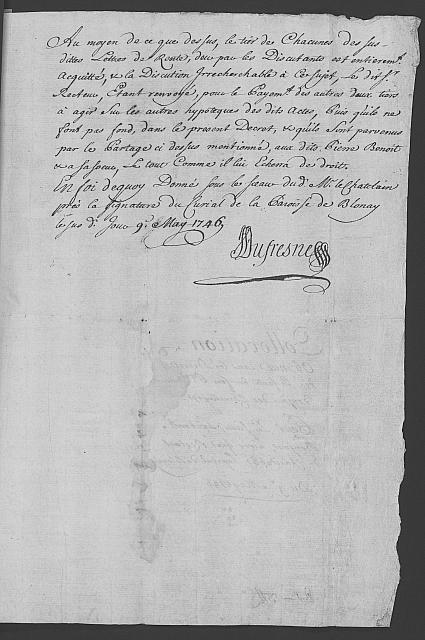 Au moyen de ce que dessus, le tiers de Chacunes des sus
dittes Lettres de Rente, deu par les Discutants est entierem.t
Acquitté, & la Discution Irrecherchable à Ce sujet, Le dit S.r
Recteur, Étant renvoyé, pour le Payem.t des autres deux tiers
à agir Sur les autres hypoteques des dits Actes, Puis qu'ils ne
font pas fond, dans le present Decret, & qu'ils Sont parvenus
par le Partage ci dessus mentionné, aux dits Pierre Benoit
& a sa soeur, Le tout Comme il lui Echerra de droit.
En foi dequoy Donné sous le sceau du d. Mr. le Chatelain
près la signature du Curial de la Paroisse de Blonay
le sus d. Jour 9.e May 1746
Dufresne
Collocation